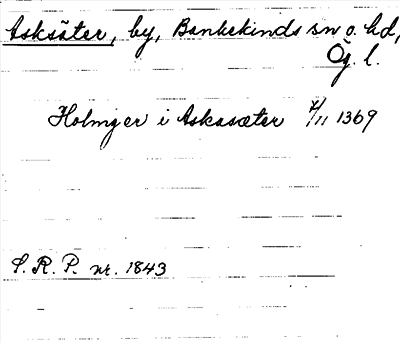 Asksäter, by, Bankekinds sn o. hd,
Ög. l.
Holmger i Askasæter 7/11 1369
S. R. P. nr. 1843